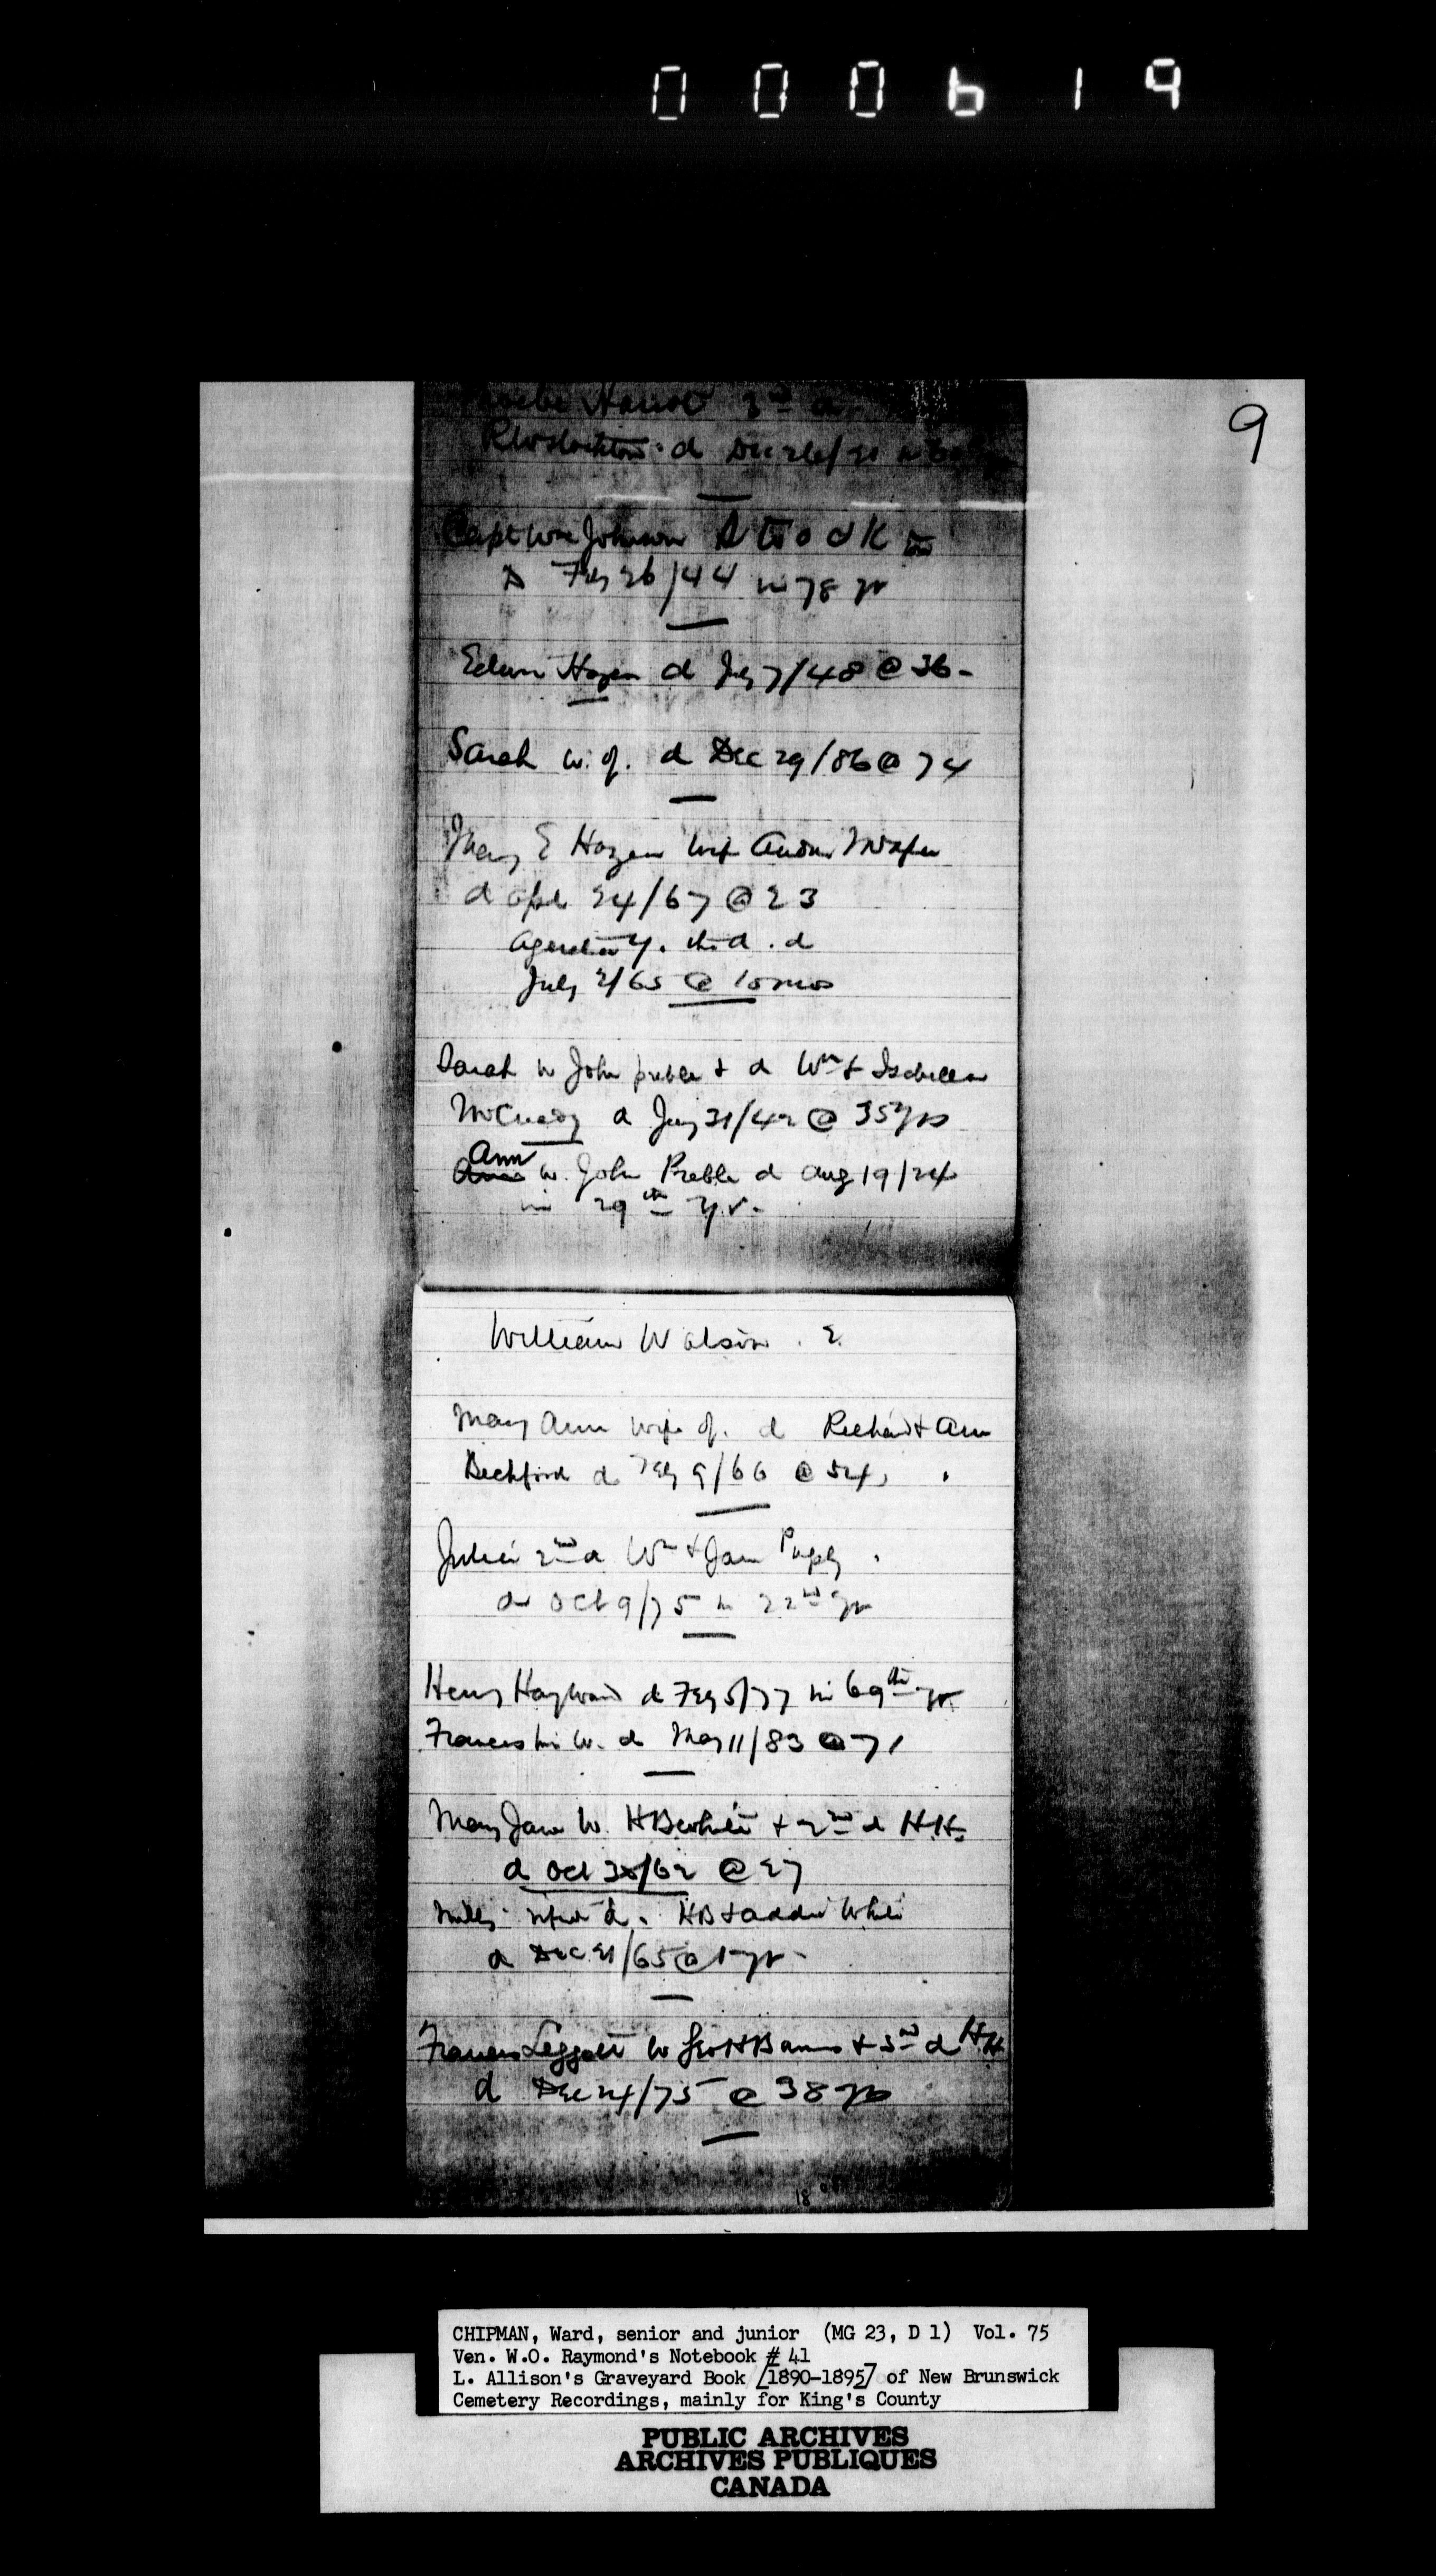 000619
9
3rd d
d Dec 26/
Capt Wm Johnson
D Feby 26/44 in 78 yr
Edwin Hazen d July 7/48 @ 36-
Sarah w. of. d Dec 29/86 @ 74
Mary E Hazen wife
d Apl 24/67 @ 23
d. d
July 2/65 @ 10 mos
Sarah w John Preble + d Wm + Isabella
McCready d Jany 31/42 @ 35 yrs
Ann w. John Preble d Aug 19/24
in 29th yr.
William Watson. 2.
Mary Ann wife of. d Richard + Ann
Beckford d Feby 9/66 @ 54,
Julia 2nd d Wm + Jane Pugsly.
d Oct 9/75 in 22nd yr
Henry Hayward d Feby 5/77 in 69th yr.
Frances his w. d May 11/83 @ 71
Mary Jane w. H B White + 2nd d H.H.
d Oct 62 @ 27
d. HB + Addie White
d Dec 21/65 @ 1 yr-
Frances Leggett w Geo H Barnes + 3rd d H.H
d Dec 24/75 @ 38 yrs
18
CHIPMAN, Ward, senior and junior (MG 23, D 1) Vol. 75
Ven. W.O. Raymond's Notebook # 41
L. Allison's Graveyard Book [1890-1895] of New Brunswick
Cemetery Recordings, mainly for King's County
PUBLIC ARCHIVES
ARCHIVES PUBLIQUES
CANADA